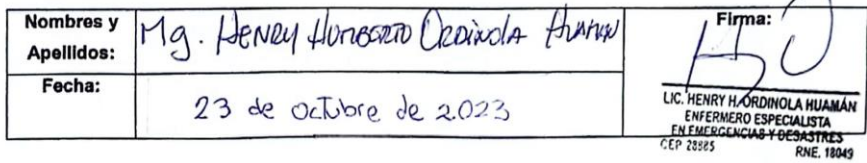 Nombres y Apellidos: Mg. HENRY HUMBERTO ORDINOLA HUAMAN
Firma:
Fecha: 23 de octubre de 2023
LIC. HENRY H. ORDINOLA HUAMÁN
ENFERMERO ESPECIALISTA
EN EMERGENCIAS Y DESASTRES
CEP 28985 RNE. 18049